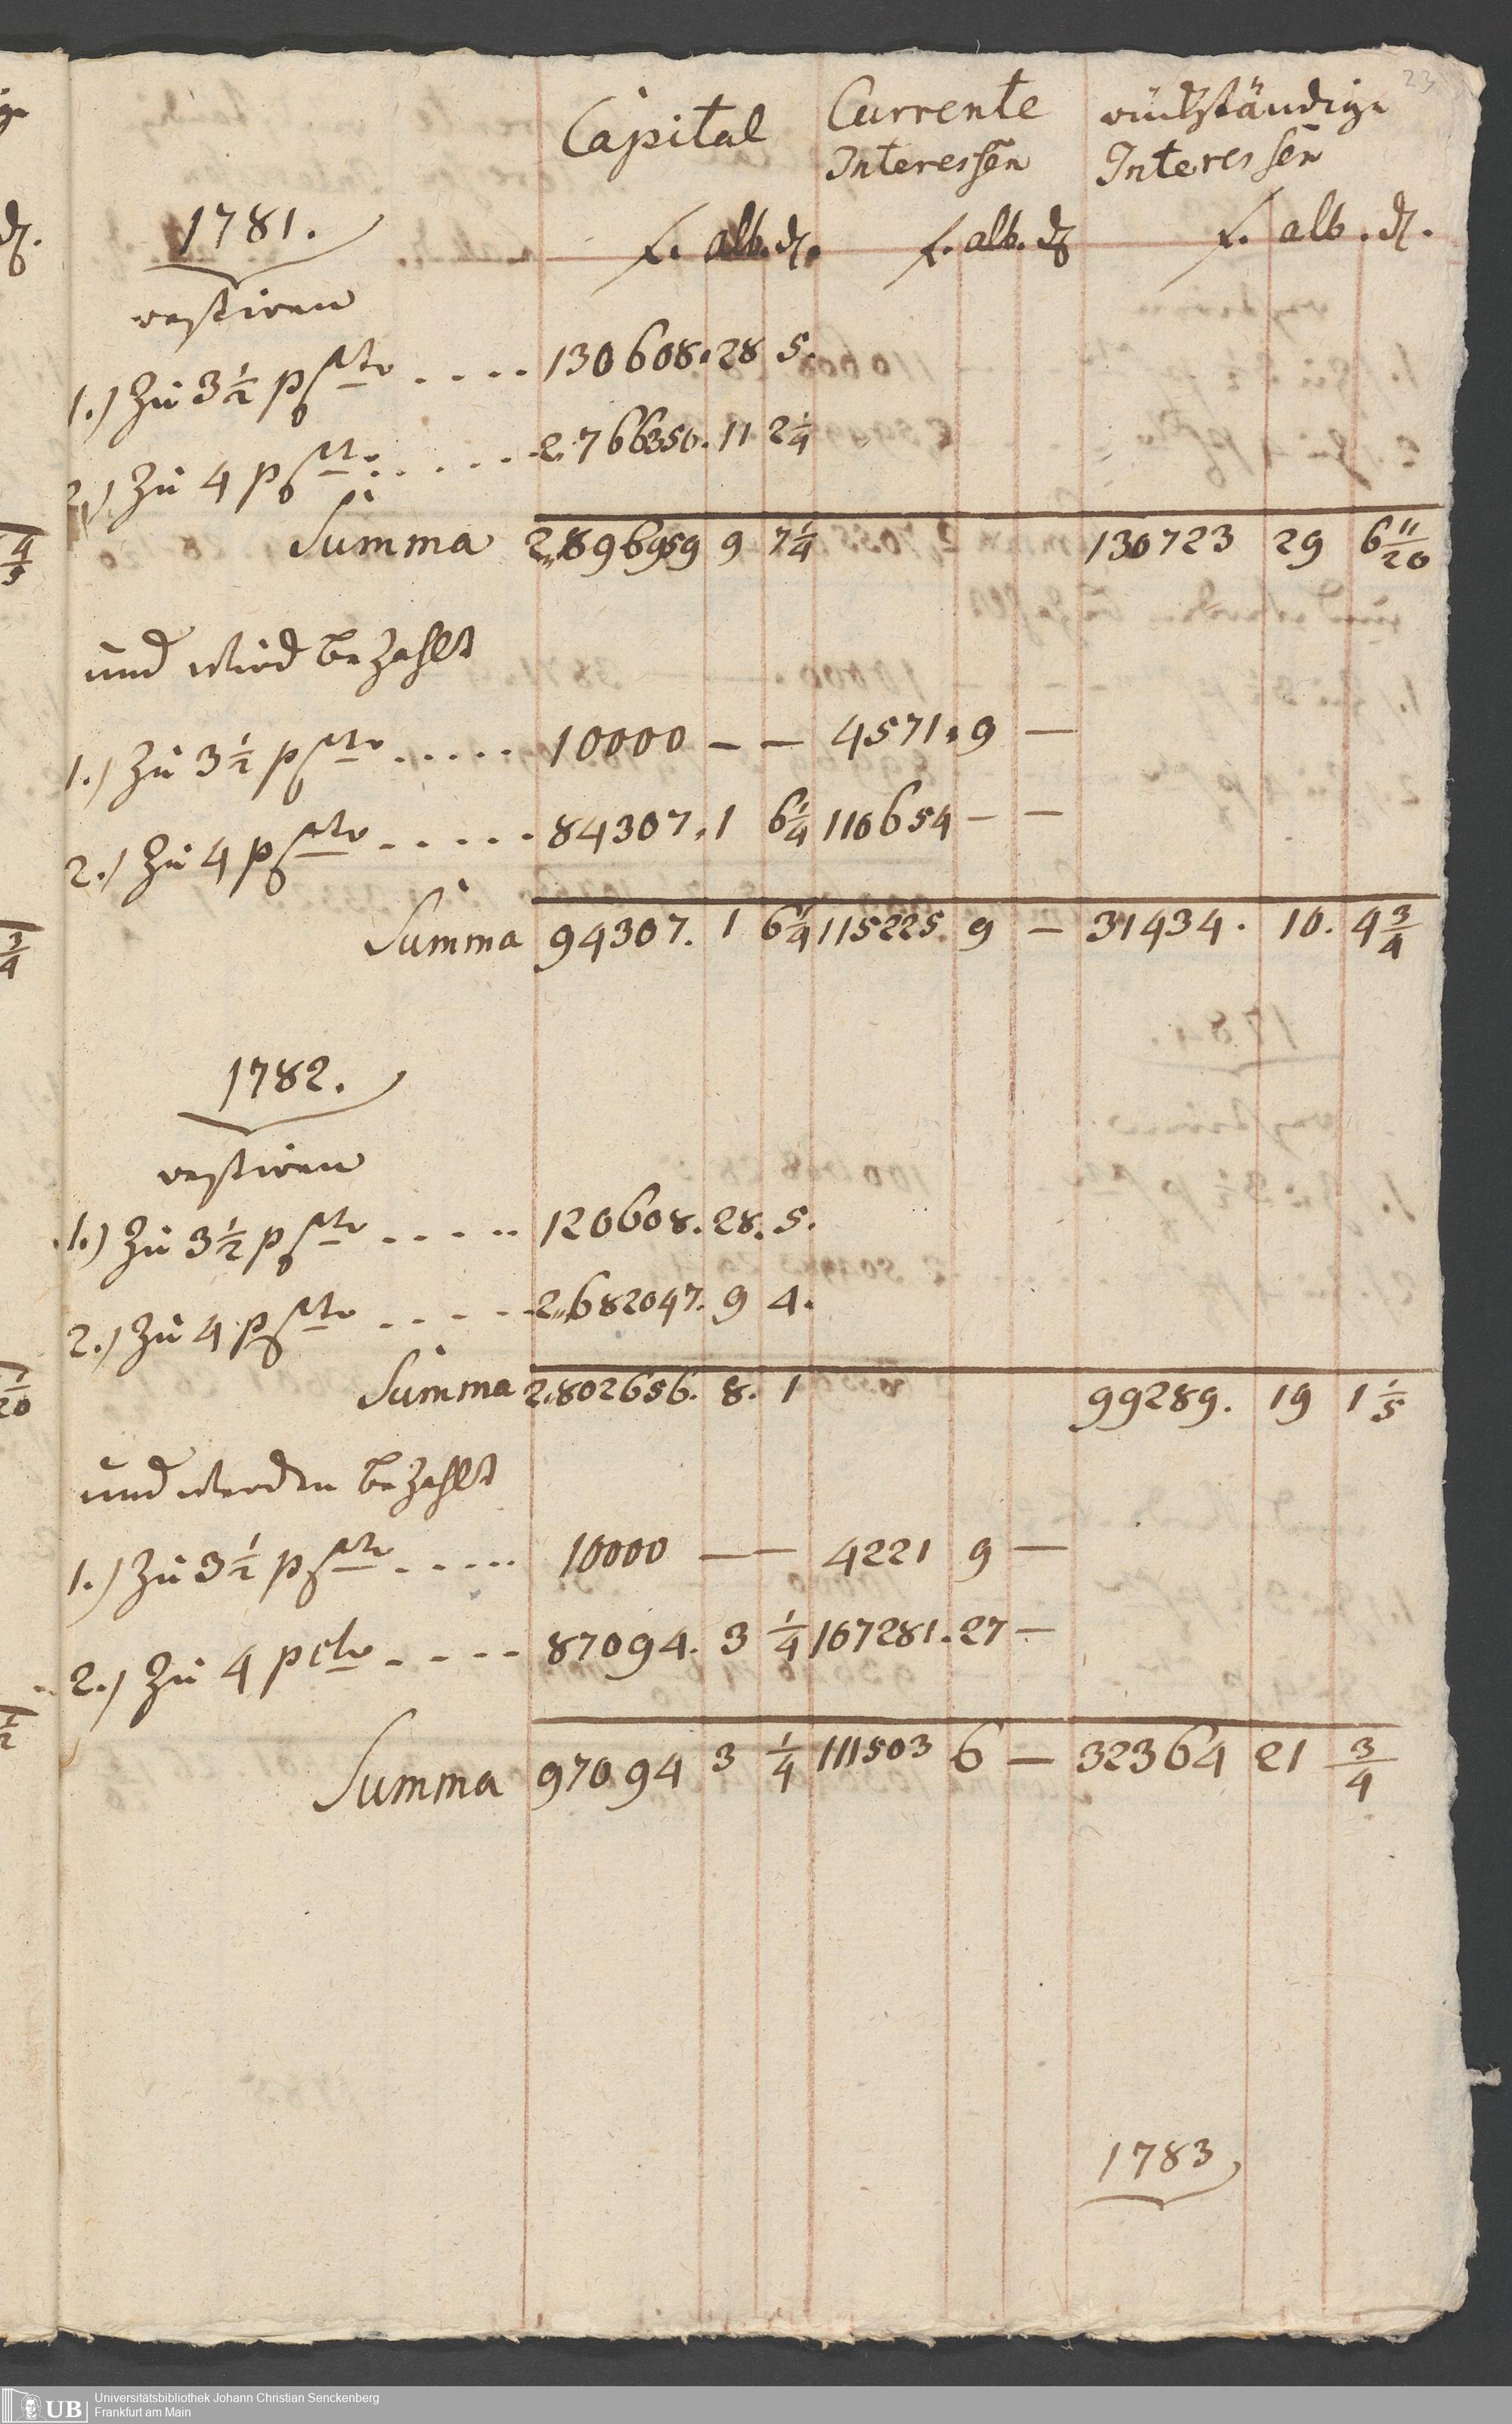 23
Capital Currente rückständige
Interessen Interessen
1781. f. alb. d. f. alb. d f. alb. d.
restiren
1.) Zu 3 1/2 p Cto .... 130608. 28 5.
2.) Zu 4 p Cto ..... 2,766350. 11 2 1/4
Summa 2,896959 9 7 1/4 130723 29 6 11/20
und wird bezahlt
1.) Zu 3 1/2 p Cto ..... 10000 — — 4571. 9 —
2.) Zu 4 p Cto ..... 84307. 1 6 1/4 110654 — —
Summa 94307. 1 6 1/4 115225. 9 — 31434. 10. 4 3/4
1782.
restiren
1.) Zu 3 1/2 p Cto ..... 120608. 28. 5.
2.) Zu 4 p Cto .... 2,682047. 9 4.
Summa 2,802656. 8. 1 99289. 19 1 1/5
und werden bezahlt
1.) Zu 3 1/2 p Cto ..... 10000 — — 4221 9 —
2.) Zu 4 p Cto .... 87094. 3 1/4 107281. 27 —
Summa 97094 3 1/4 111503 6 — 32364 21 3/4
1783
UB Universitätsbibliothek Johann Christian Senckenberg
Frankfurt am Main